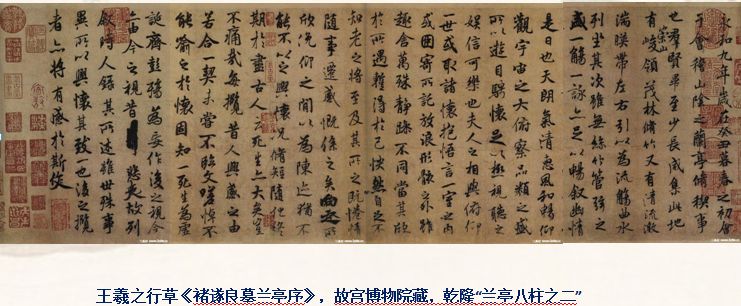 永和九年歲在癸丑暮春之初會
于會稽山陰之蘭亭脩稧事
也群賢畢至少長咸集此地
有崇山峻領茂林脩竹又有清流激
湍暎帶左右引以為流觴曲水
列坐其次雖無絲竹管弦之
盛一觴一詠亦足以暢敘幽情
是日也天朗氣清惠風和暢仰
觀宇宙之大俯察品類之盛
所以遊目騁懷足以極視聽之
娛信可樂也夫人之相與俯仰
一世或取諸懷抱悟言一室之內
或因寄所託放浪形骸之外雖
趣舍萬殊靜躁不同當其欣
於所遇蹔得於己怏然自足不
知老之將至及其所之既惓情
隨事遷感慨係之矣向之所
欣俛仰之間以為陳迹猶不
能不以之興懷況脩短隨化終
期於盡古人云死生亦大矣豈
不痛哉每攬昔人興感之由
若合一契未嘗不臨文嗟悼不
能喻之於懷固知一死生為虛
誕齊彭殤為妄作後之視今
亦由今之視昔悲夫故列
敘時人錄其所述雖世殊事
異所以興懷其致一也後之攬
者亦將有感於斯文
王羲之行草《褚遂良墓兰亭序》，故宫博物院藏，乾隆“兰亭八柱之二”